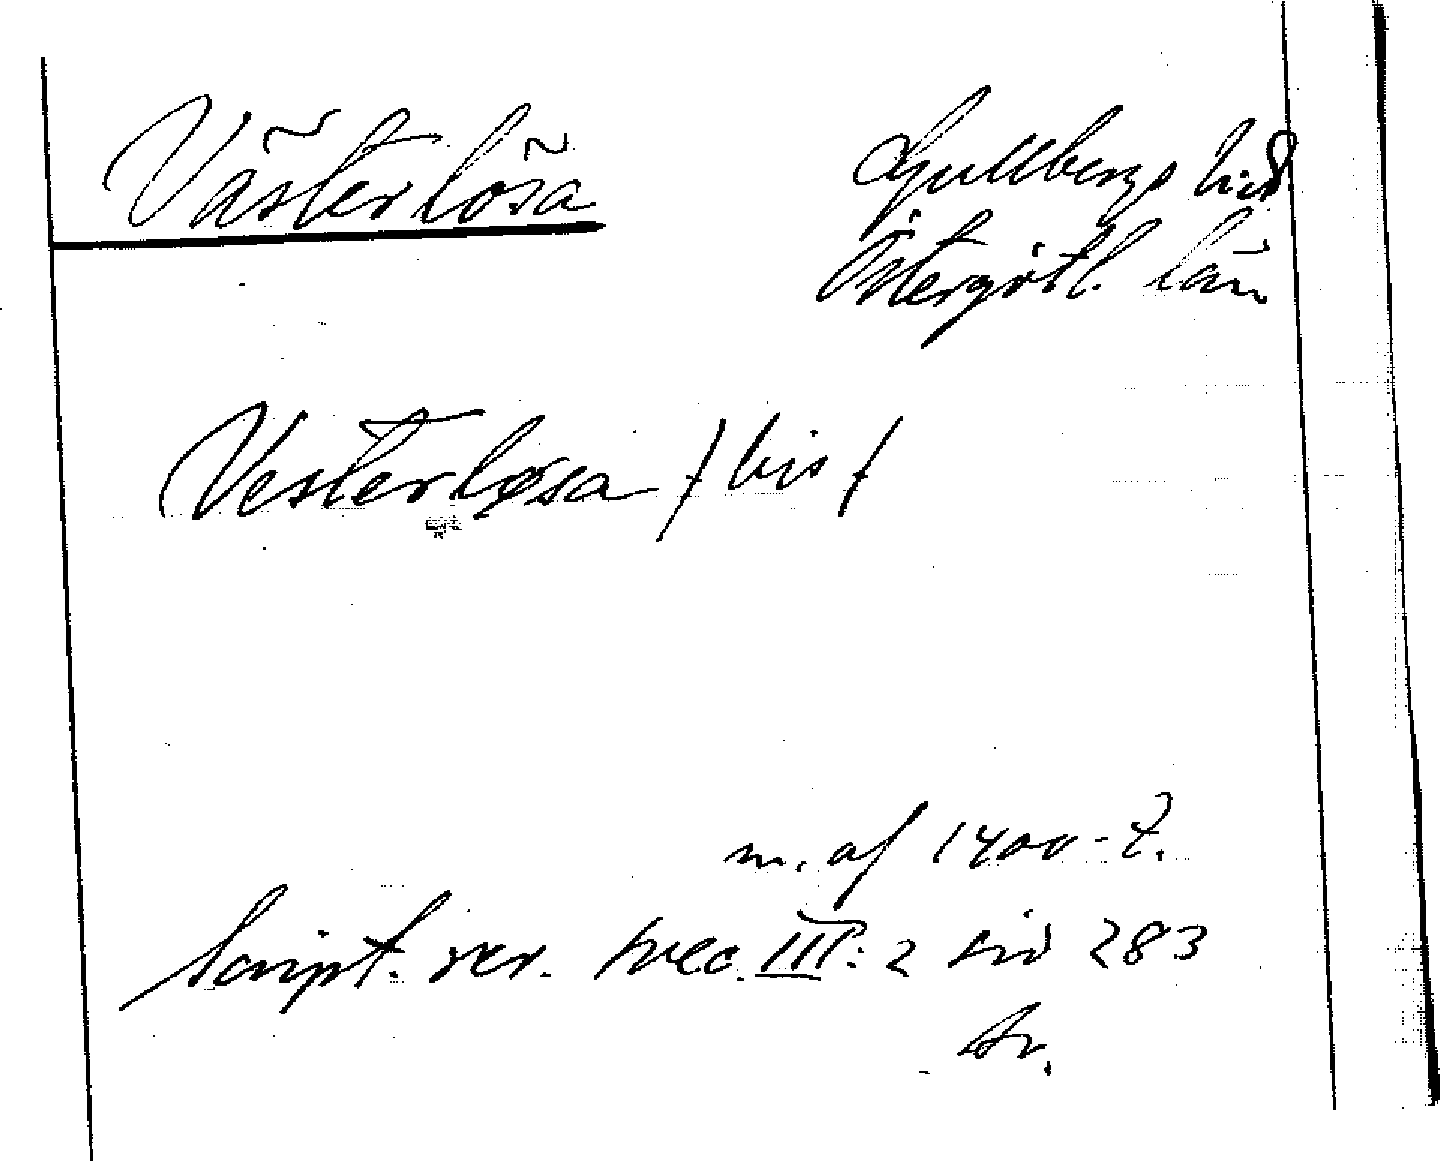 Västerlösa
Gullbergs hd
Östergötl. län
Vesterløsa / bis /
m. af 1400-t.
Script. rer. svec. III: 2 sid 283
tr.